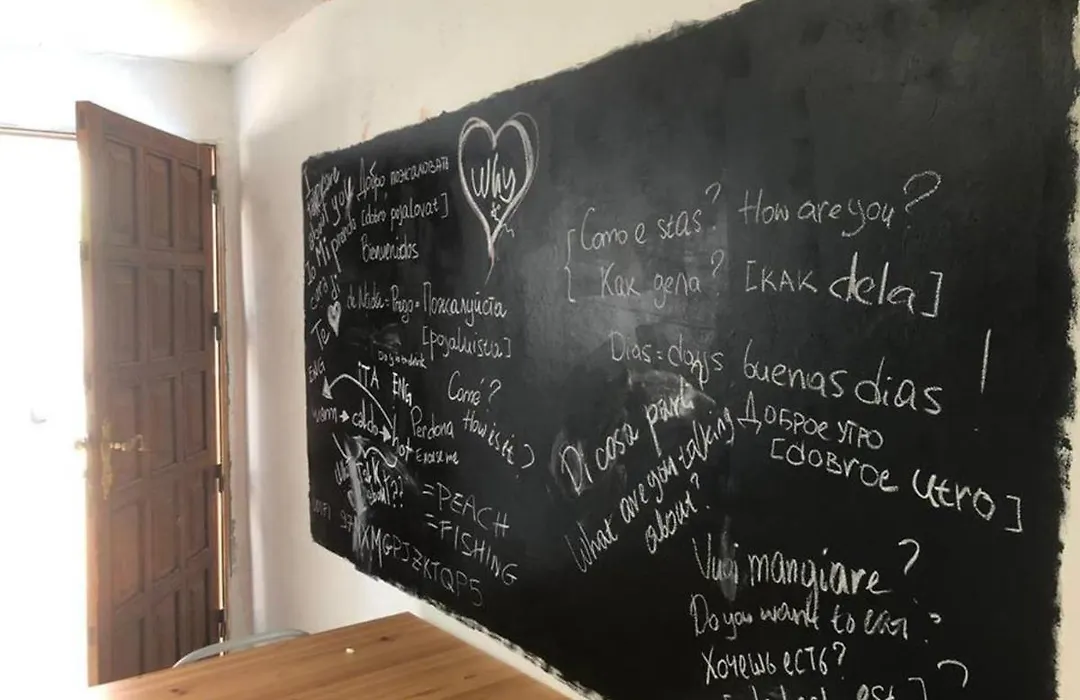 about you
Mi prendo
cura di
Te
Добро пожаловать
[dobro pojalovat]
Bienvenidos
de Nada = Prego = Пожалуйста
[pojaluista]
Why
Como e stas? How are you?
Как дела? [как dela]
Dias = days buenas dias !
Доброе утро
[dobroe utro]
ENG ITA ENG
warm → caldo → hot
Comé?
How is it?
Perdona
Excuse me
Di cosa parli
What are you talking
about?
= PEACH
= FISHING
XMGPJZKTQP5
Vuoi mangiare?
Do you want to eat?
Хочешь есть?